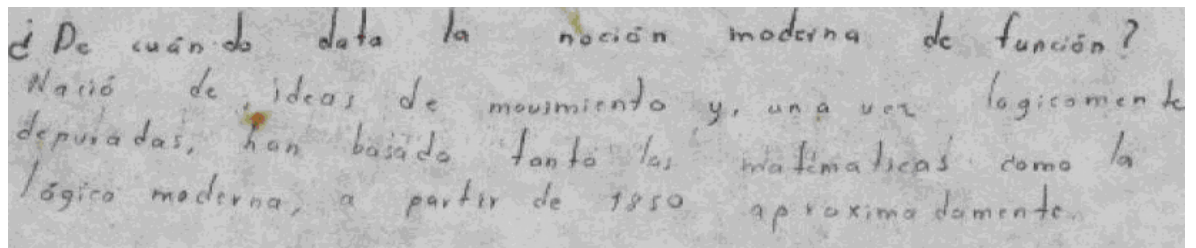 ¿De cuándo data la noción moderna de función?
Nació de ideas de movimiento y, una vez logicamente
depuradas, han basado tanto las matématicas como la
lógica moderna, a partir de 1850 aproximadamente.